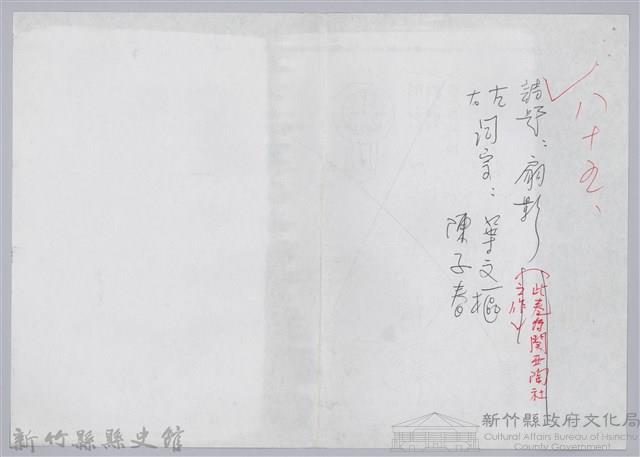 八十五、
詩題：扇影
（此卷存關西陶社
之作）
左
右詞宗：葉文樞
陳子春
新竹縣縣史館
新竹縣政府文化局
Cultural Affairs Bureau of Hsinchu
County Government